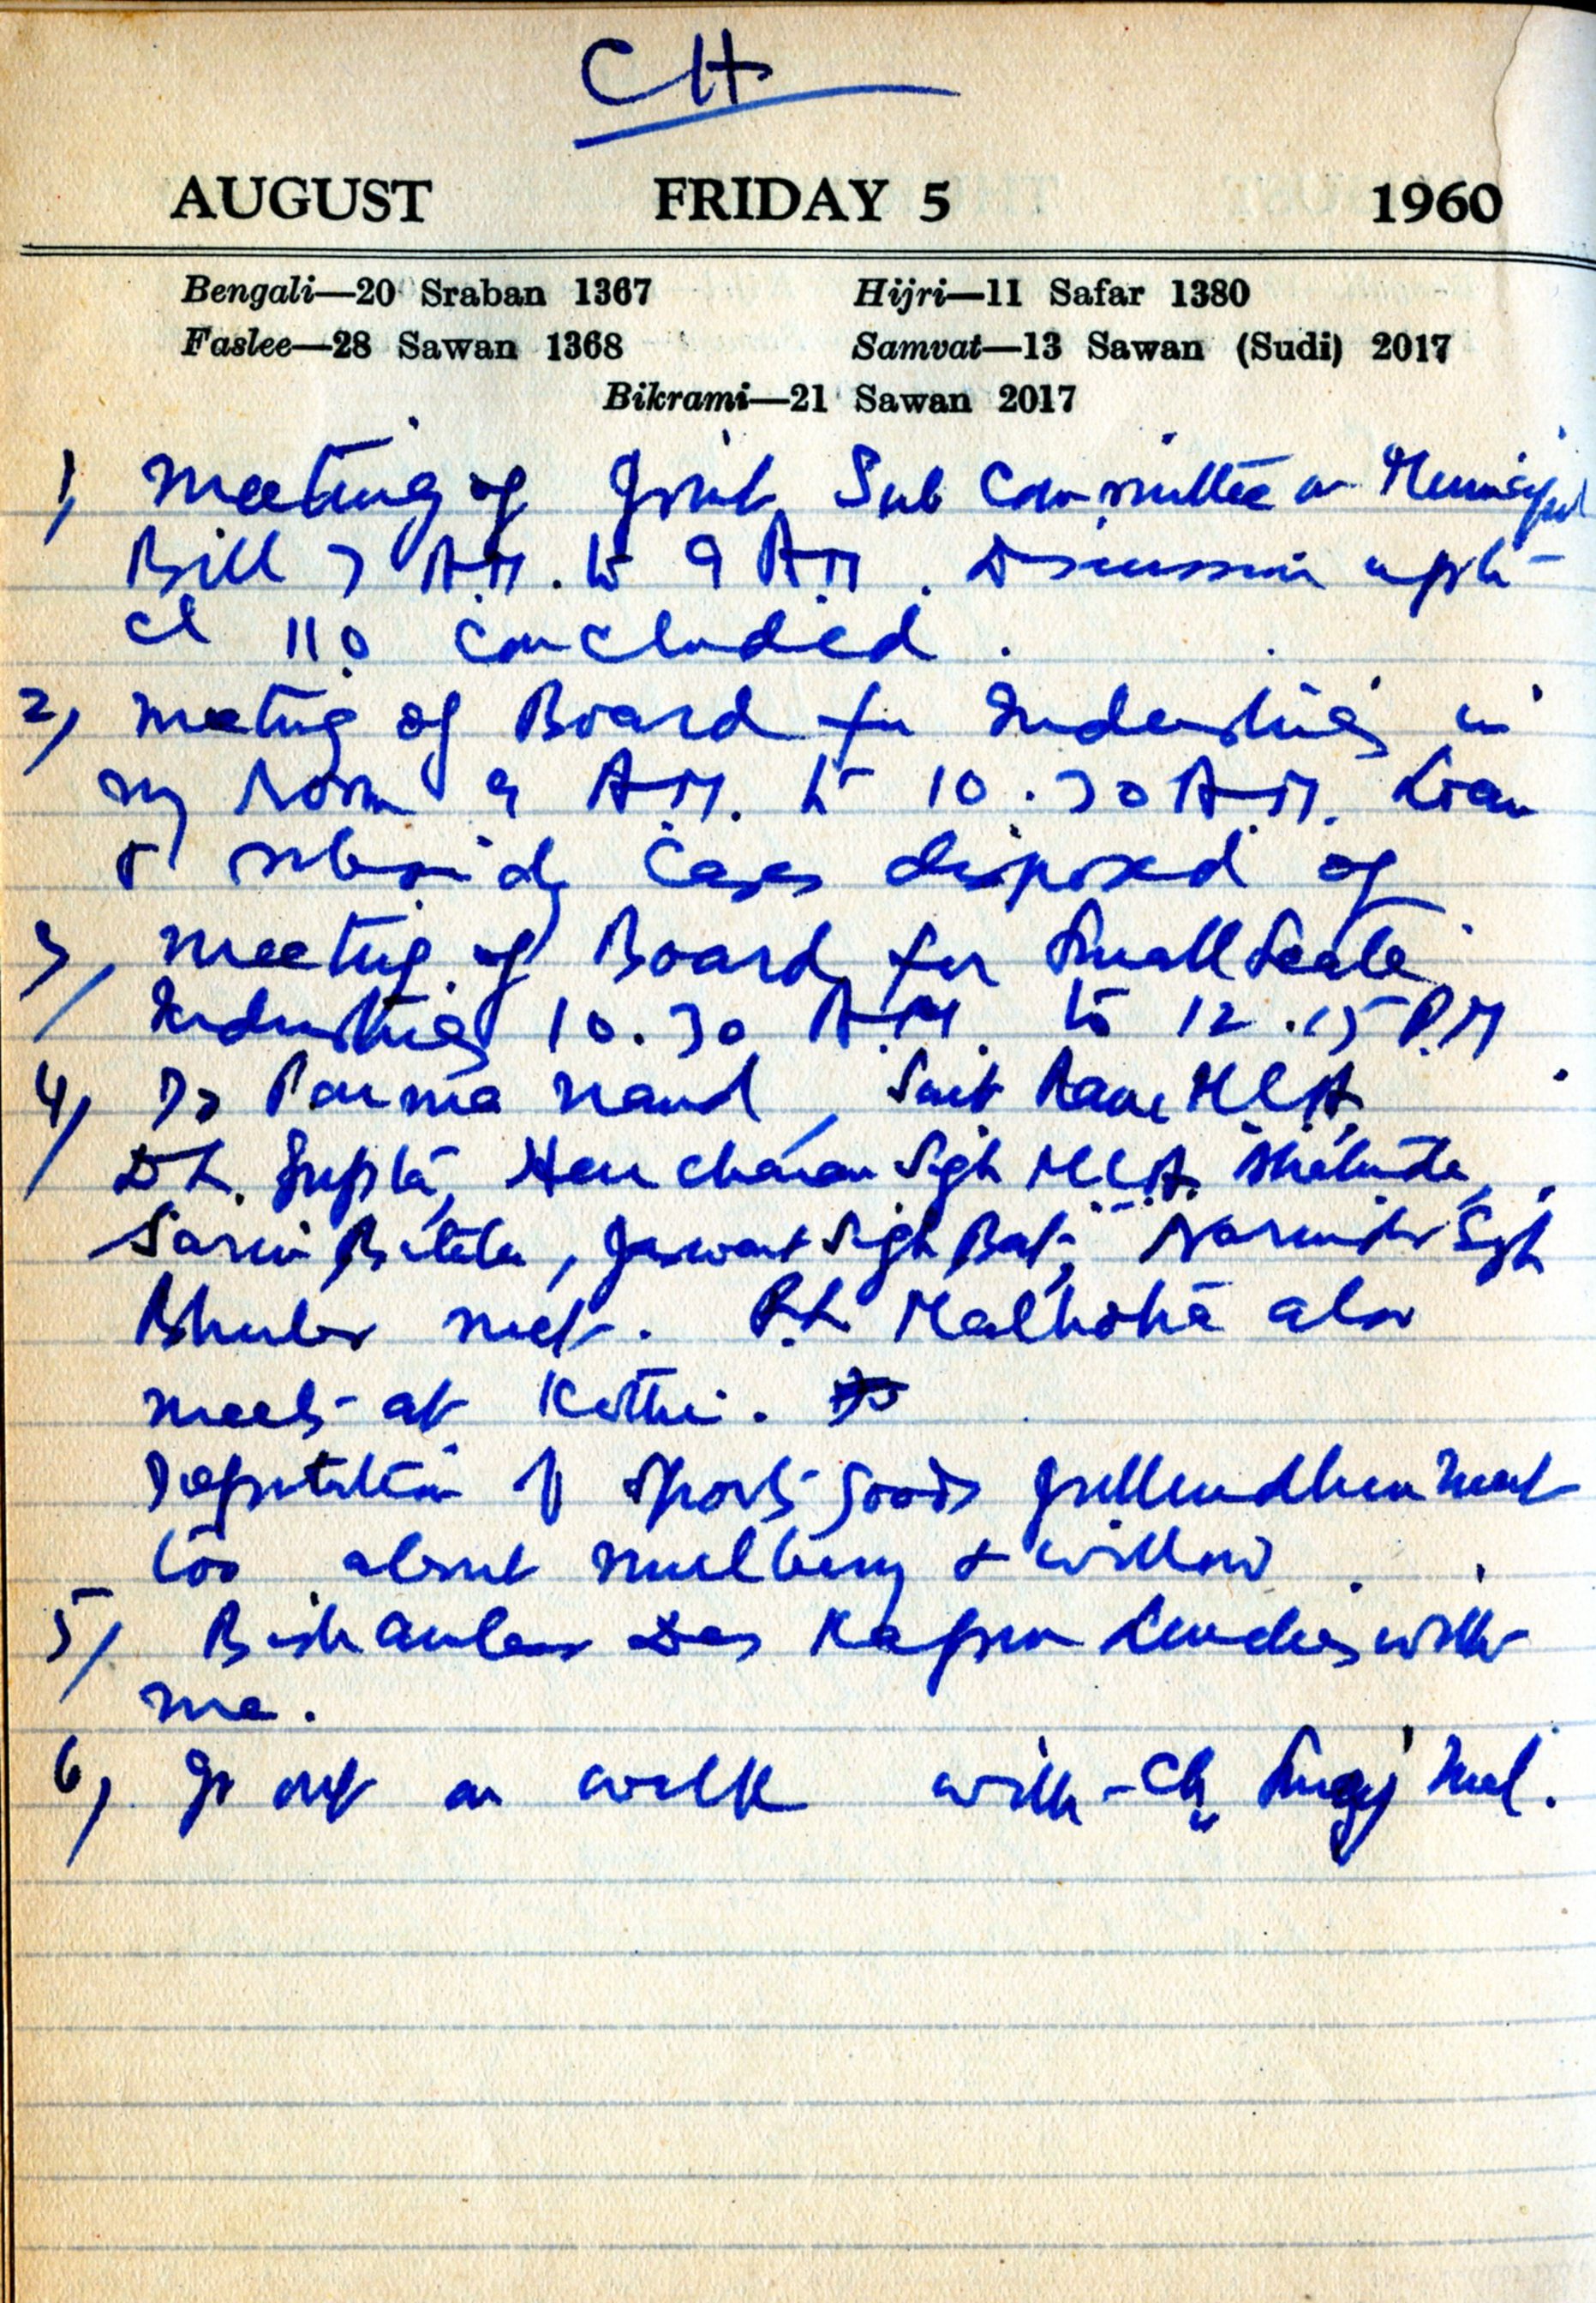 CH
AUGUST FRIDAY 5 1960
Bengali—20 Sraban 1367 Hijri—11 Safar 1380
Faslee—28 Sawan 1368 Samvat—13 Sawan (Sudi) 2017
Bikrami—21 Sawan 2017
1) Meeting of Joint Sub Committee on Municipal
Bill 7 A.M. to 9 A.M. Discussion upto
cl 110 concluded.
2) Meeting of Board for Industries in
my Room 9 A.M. to 10.30 A.M. Loan
& subsidy cases disposed of
3) Meeting of Board for Small Scale
Industries 10.30 A.M. to 12.15 P.M
4) Dr Parma Nand, Sant Ram MLA,
D.L. Gupta, Harcharan Singh MLA
Sarin Batala, Jaswant Singh Narinder Singh
met. P.L. Malhotra also
meets at Kothi.
Deputation of Sports goods Jullundhur meet
too about mulberry & willow
5) Das Kapur lunches with
me.
6) Go out on walk with Ch Suraj Mal.